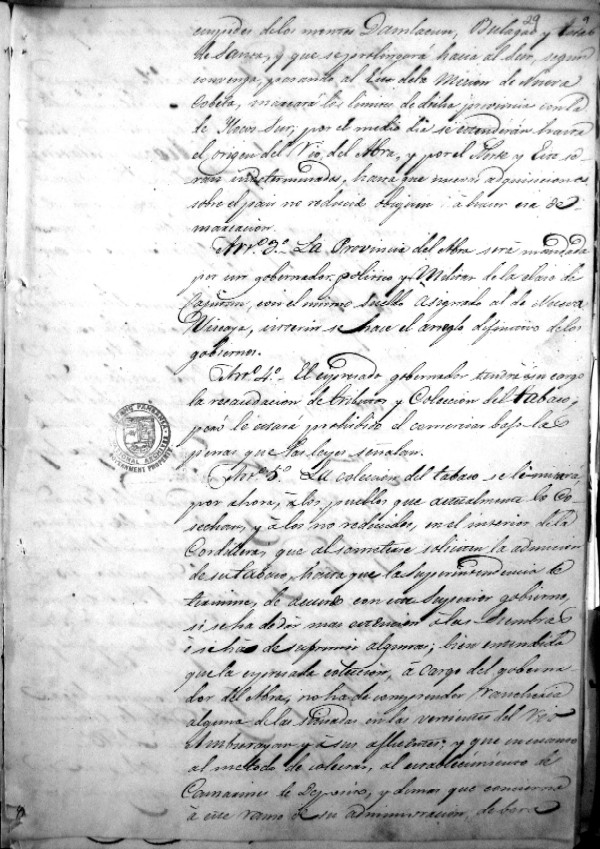 29
cuspides de los montes Damlacun, Bulagao y
de Sansa, y que se prolongará hacia el Sur, segun
convenga, pasando al Este de la Mision de Nueva
Cobeta, marcará los limites de dicha provincia con la
de Ilocos Sur; por el medio dia se estenderán hasta
el origen del Rio del Abra, y por el Norte y Este se-
rán indeterminados, hasta que nuevas adquisiciones
sobre el pais no reducido obliguen á hacer esa de-
marcacion.
Art.º 3.º La Provincia del Abra será mandada
por un gobernador político y Militar de la clase de
Capitan, con el mismo sueldo asignado al de Nueva
Viscaya, interin se hace el arreglo definitivo de los
gobiernos.
Art.º 4.º El espresado gobernador tendrá á su cargo
la recaudacion de tributos y Coleccion del tabaco,
pero le estará prohibido el comerciar bajo las
penas que las leyes señalan.
Art.º 5.º La coleccion del tabaco se limitará
por ahora, á los pueblos que actualmente lo Co-
sechan, y á los no reducidos, en el interior de la
Cordillera, que al someterse soliciten la admision
de su tabaco, hasta que la Superintendencia de-
termine, de acuerdo con este Superior gobierno,
si se ha de dar mas estension á las siembras
ó se há de suprimir algunas; bien entendido
que la espresada coleccion, á cargo del goberna-
dor del Abra, no ha de comprender Rancheria
alguna de las situadas en las vertientes del Rio
Amburayan y á sus afluentes, y que en cuanto
al metodo de colectar, al establecimiento de
Camarines de Deposito, y demas que concierne
á este ramo y su administracion, deberá